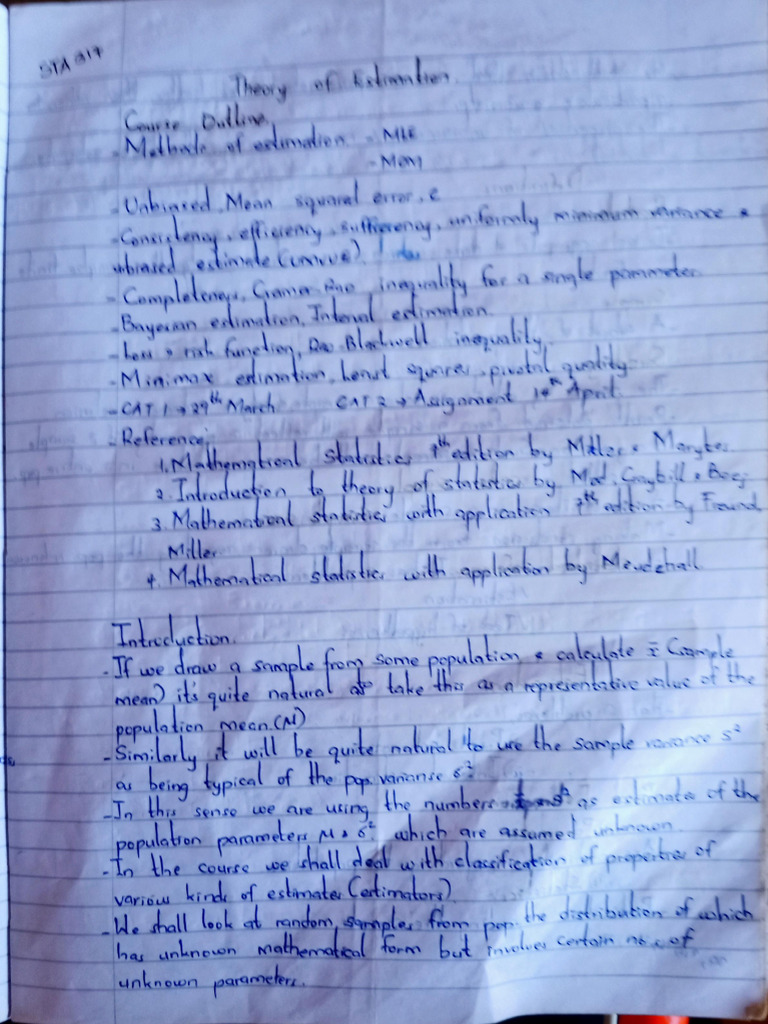 STA 317
Theory of Estimation
Course Outline
- Methods of estimation - MLE
- MOM
- Unbiased, Mean squared error, c
- Consistency, efficiency, sufficiency, uniformly minimum variance &
unbiased estimate (umvue)
- Completeness, Cramer Rao inequality for a single parameter
- Bayesian estimation, Interval estimation
- Loss & risk function, Rao Blackwell inequality
- Minimax estimation, Least squares, pivotal quality
- CAT 1 → 29th March CAT 2 → Assignment 14th April
- Reference;
1. Mathematical Statistics 7th edition by Miller &
2. Introduction to theory of statistics by Mod, Graybill &
3. Mathematical statistics with application 7th edition by Freund
Miller
4. Mathematical statistics with application by Mendehall
Introduction
- If we draw a sample from some population & calculate x̄ (sample
mean) it's quite natural to take this as a representative value of the
population mean (μ)
- Similarly it will be quite natural to use the sample variance s²
as being typical of the pop. variance σ²
- In this sense we are using the numbers as estimates of the
population parameters μ & σ² which are assumed unknown
- In the course we shall deal with classification of properties of
various kinds of estimates (estimators)
- We shall look at random samples from pop the distribution of which
has unknown mathematical form but involves certain no. of
unknown parameters.